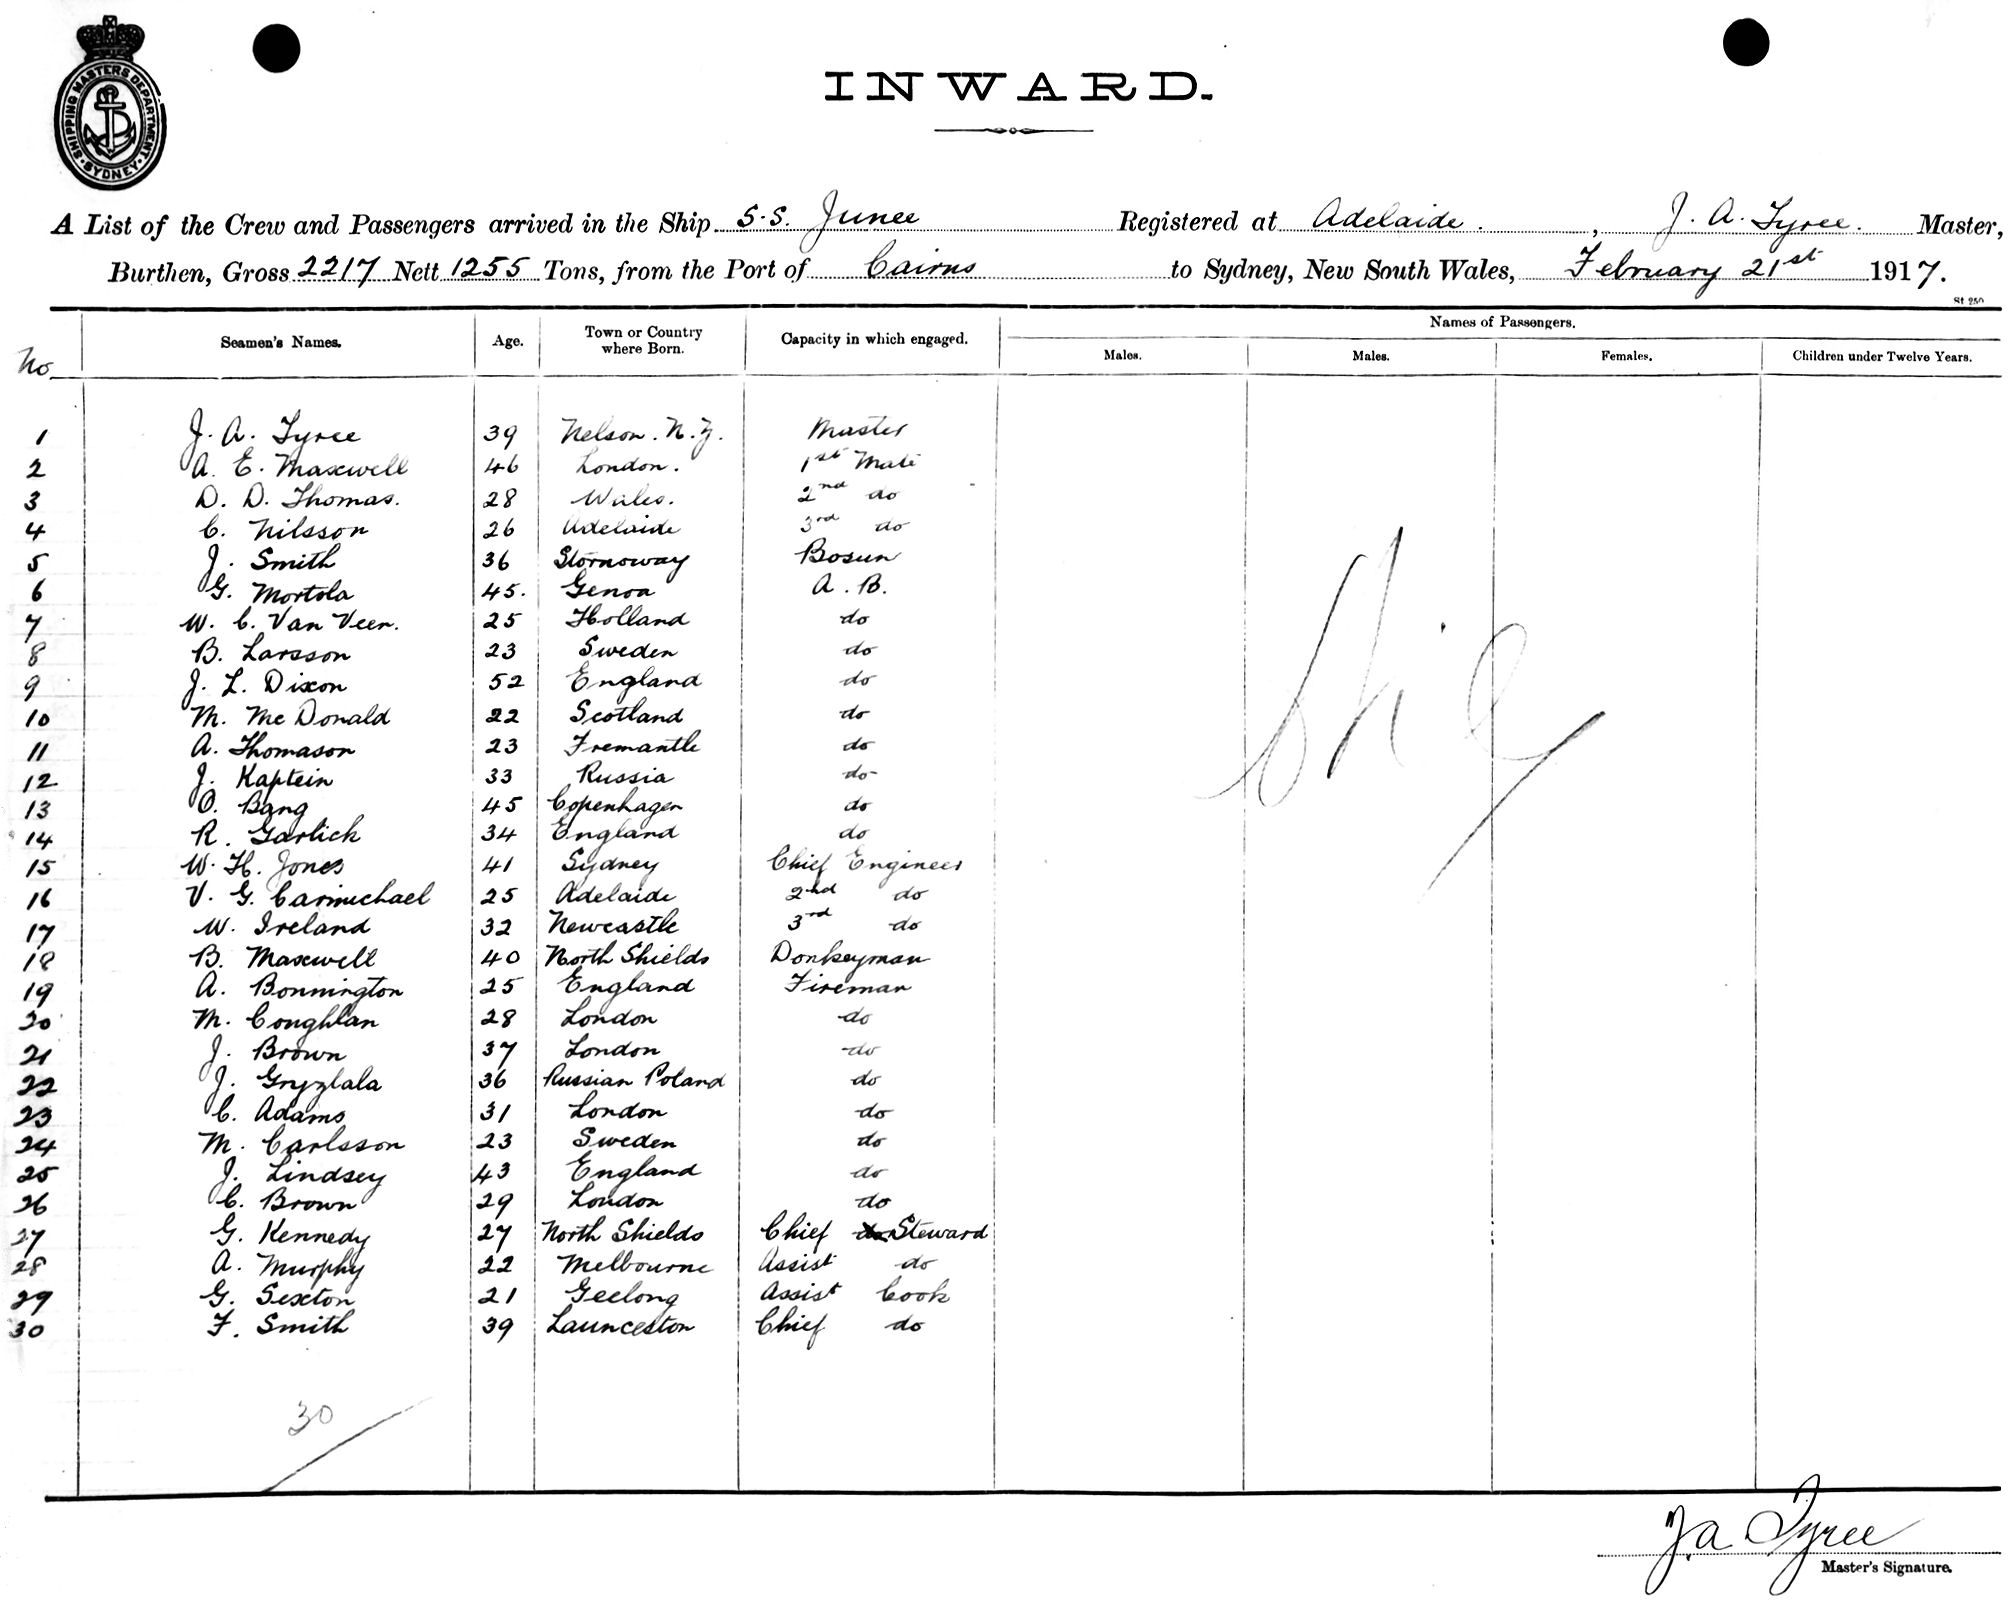 SHIPPING MASTERS DEPARTMENT SYDNEY
INWARD.
A List of the Crew and Passengers arrived in the Ship S.S. Junee Registered at Adelaide. , J. A. Tyree. Master,
Burthen, Gross 2217 Nett 1255 Tons, from the Port of Cairns to Sydney, New South Wales, February 21st 1917.
St 250
No Seamen's Names. Age. Town or Country where Born. Capacity in which engaged. Names of Passengers.
Males. Males. Females. Children under Twelve Years.
1 J. A. Tyree 39 Nelson. N.Z. Master
2 A. E. Maxwell 46 London. 1st Mate
3 D. D. Thomas. 28 Wales. 2nd do
4 C. Nilsson 26 Adelaide 3rd do
5 J. Smith 36 Stornoway Bosun
6 G. Mortola 45. Genoa A. B.
7 W. C. Van Veen. 25 Holland do
8 B. Larsson 23 Sweden do
9 J. L. Dixon 52 England do
10 M. McDonald 22 Scotland do
11 A. Thomason 23 Fremantle do
12 J. Kaptein 33 Russia do
13 O. Bang 45 Copenhagen do
14 R. Garlick 34 England do
15 W. H. Jones 41 Sydney Chief Engineer
16 V. G. Carmichael 25 Adelaide 2nd do
17 W. Ireland 32 Newcastle 3rd do
18 B. Maxwell 40 North Shields Donkeyman
19 A. Bonnington 25 England Fireman
20 M. Coughlan 28 London do
21 J. Brown 37 London do
22 J. Gryzlala 36 Russian Poland do
23 C. Adams 31 London do
24 M. Carlsson 23 Sweden do
25 J. Lindsey 43 England do
26 C. Brown 29 London do
27 G. Kennedy 27 North Shields Chief Steward
28 A. Murphy 22 Melbourne Assist do
29 G. Sexton 21 Geelong Assist Cook
30 F. Smith 39 Launceston Chief do
30
J. A Tyree
Master's Signature.